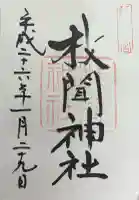 枚聞神社
平成二六年一月二九日